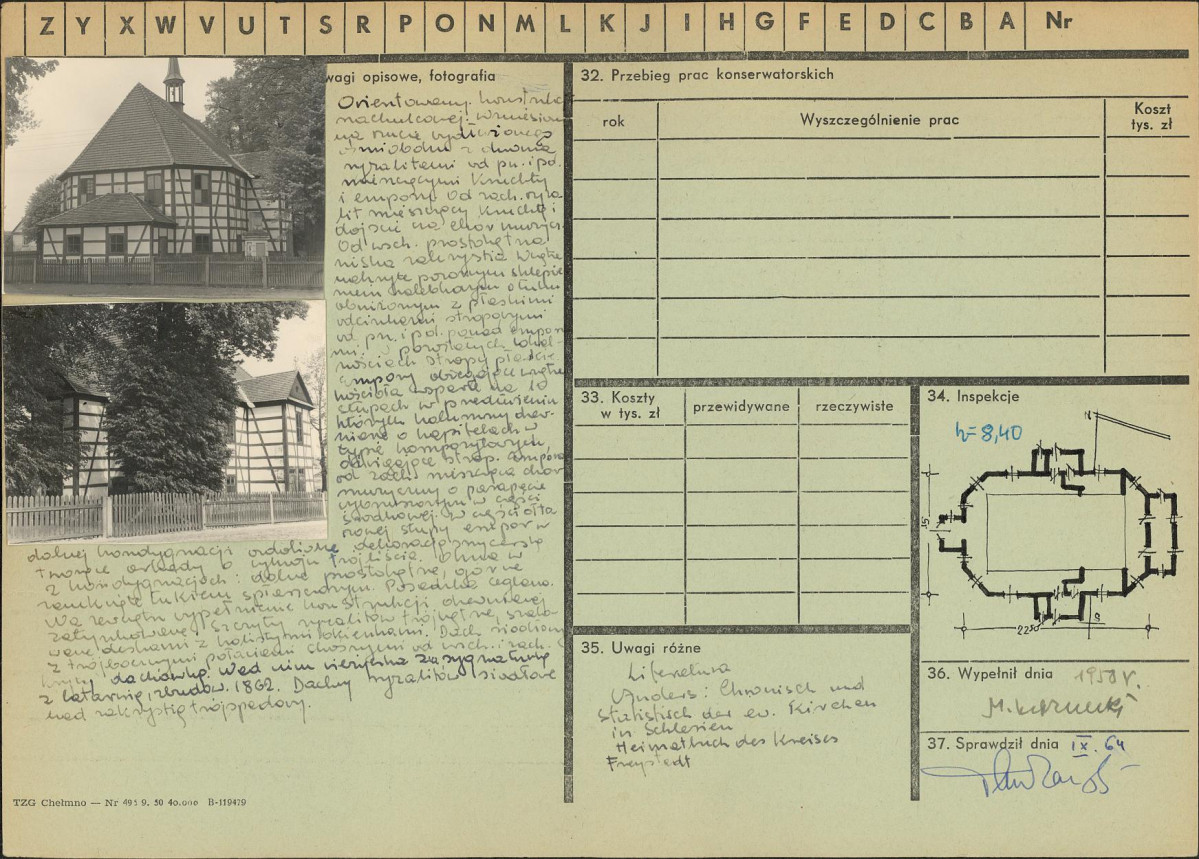 Z Y X W V U T S R P O N M L K J I H G F E D C B A Nr
wagi opisowe, fotografia
Orientowany. konstrukcji
na rzucie wydłużonego
ośmioboku z dwoma
ryzalitami od pn. i pd.
mieszczącymi kruchty
i empory. Od zach. ryza-
lit mieszczący kruchtę i
dojście na chór muzycz.
Od wsch. prostokątna
niska zakrystia. Wnętrze
nakryte pozornym sklepie-
niem kolebkowym o łuku
obniżonym z płaskimi
odcinkami stropowymi
od pn. i pd. ponad empora-
mi. W pozostałych lokal-
nościach stropy płaskie
Empory obiegające wnętrze
kościoła wsparte na 10
słupach w przedłużeniu
których kolumny drew-
niane o kapitelach w
typie kompozytowym,
dźwigające strop. Empora
od zach. mieszcząca chór
muzyczny o parapecie
w części
środkowej. W części ołta-
rzowej słupy empor w
dolnej kondygnacji ozdobione dekoracją snycerską
tworzą arkady o wykroju trójliścia. Okna w
2 kondygnacjach: dolne prostokątne, górne
zamknięte łukiem spłaszczonym. Posadzka ceglana.
Na zewnątrz wypełnienie konstrukcji drewnianej
zatynkowane. Szczyty ryzalitów trójkątne, szalo-
wane deskami z kolistymi okienkami. Dach siodłowy
z trójbocznymi połaciami skośnymi od wsch. i zach.
kryty dachówką. Nad nim wieżyczka z sygnaturką
z latarnią, zbudow. 1862. Dachy ryzalitów siodłowe
nad zakrystią trójspadowy.
TZG Chełmno — Nr 495 9. 50 40.000 B-119479
32. Przebieg prac konserwatorskich
rok
Wyszczególnienie prac
Koszt
tys. zł
33. Koszty
w tys. zł
przewidywane
rzeczywiste
34. Inspekcje
h=8,40
N
15
2250
S
35. Uwagi różne
Literatura
Anders: Chronisch und
Statistisch der ev. Kirchen
in Schlesien
Heimatbuch des Kreises
Freystadt
36. Wypełnił dnia 1958 r.
37. Sprawdził dnia IX. 64